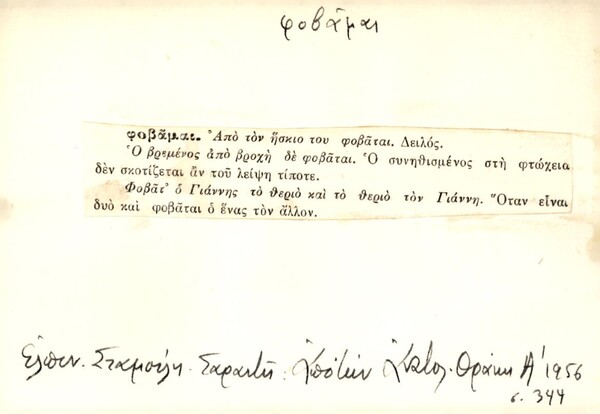 φοβᾶμαι
φοβᾶμαι. Ἀπὸ τὸν ἥσκιο του φοβᾶται. Δειλός.
Ὁ βρεμένος ἀπὸ βροχὴ δὲ φοβᾶται. Ὁ συνηθισμένος στὴ φτώχεια
δὲν σκοτίζεται ἂν τοῦ λείψη τίποτε.
Φοβᾶτ' ὁ Γιάννης τὸ θεριὸ καὶ τὸ θεριὸ τὸν Γιάννη. Ὅταν εἶναι
δυὸ καὶ φοβᾶται ὁ ἕνας τὸν ἄλλον.
Ἐλπιν. Σταμούλη-Σαραντῆ. Ἀπὸ τὴν Ἀνατολ. Θράκη Α' 1956
σ. 344